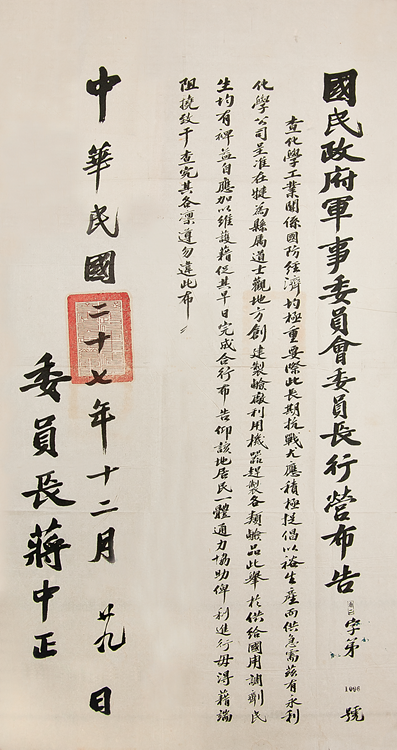 國民政府軍事委員會委員長行營布告 字第1096號
查化學工業關係國防經濟均極重要際此長期抗戰尤應積極提倡以裕生產而供急需茲有永利
化學公司呈准在犍為縣属道士觀地方創建製鹼廠利用機器趕製各類鹼品此舉於供給國用調劑民
生均有裨益自應加以維護藉促其早日完成合行布告仰該地居民一體通力協助俾利進行毋得藉端
阻撓致干查究其各凛遵勿違此布
中華民國二十七年十二月廿九日
委員長蔣中正